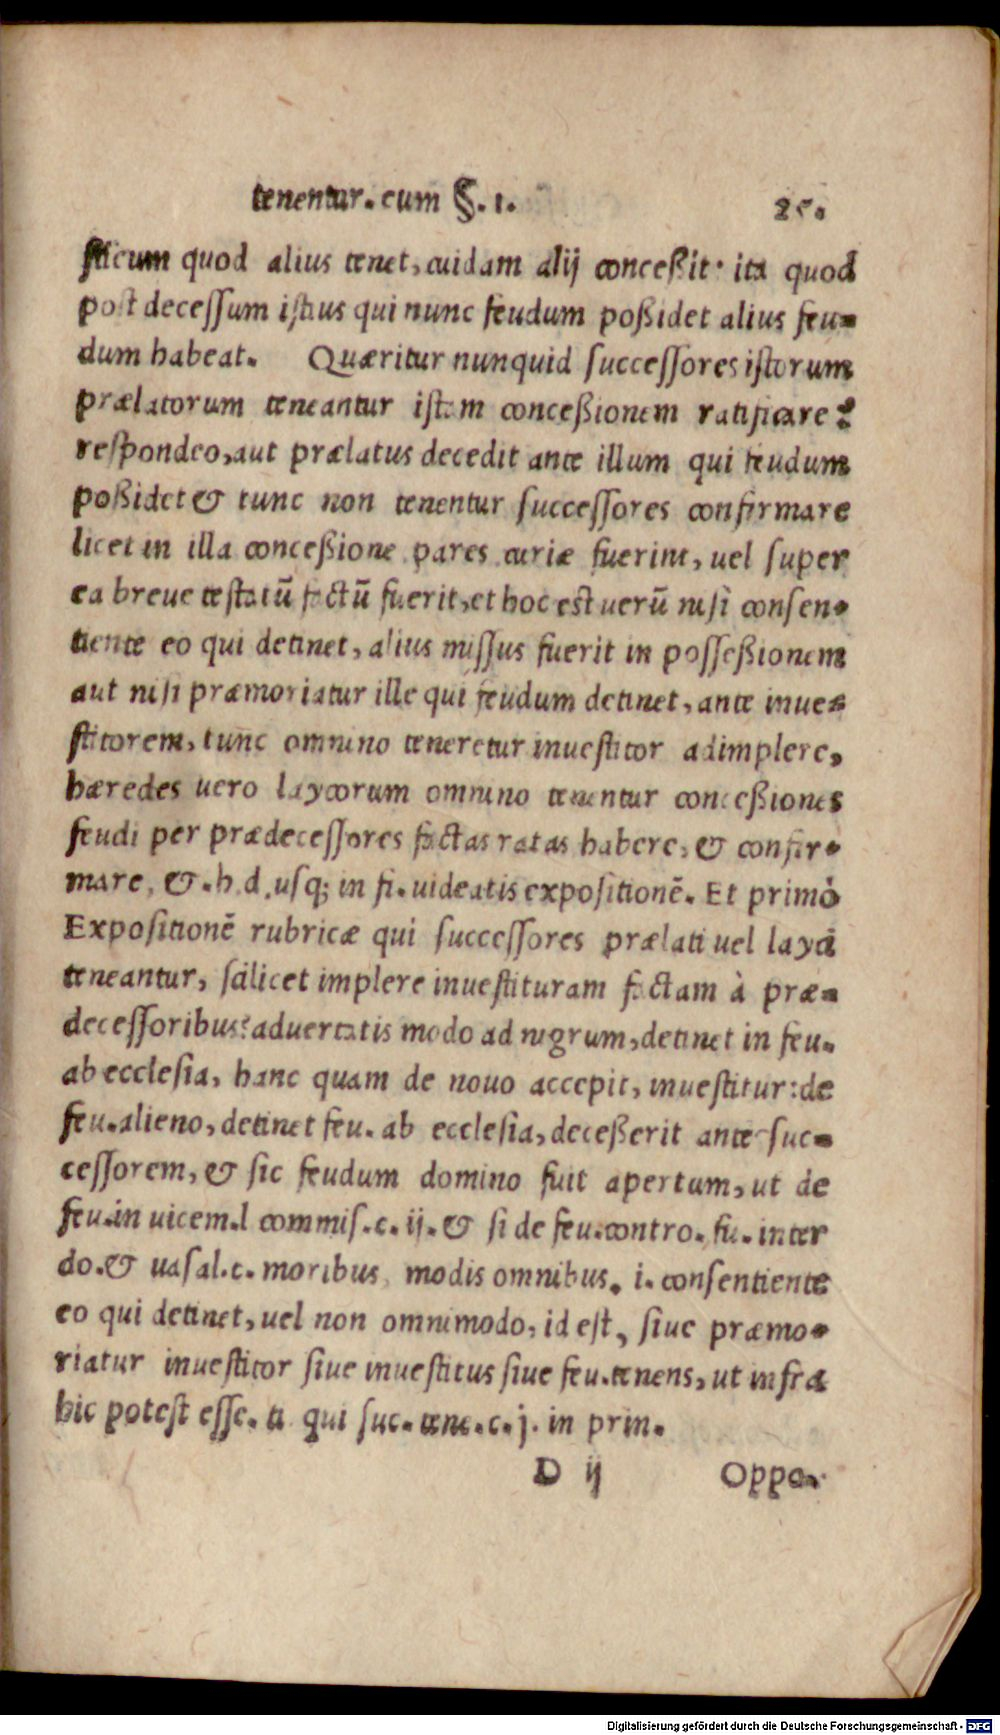 tenentur. cum §. 1. 25.
sticum quod alius tenet, cuidam alij conceßit· ita quod
post decessum istius qui nunc feudum poßidet alius feu-
dum habeat. Quæritur nunquid successores istorum
prælatorum teneantur istam conceßionem ratificare?
respondeo, aut prælatus decedit ante illum qui feudum
poßidet & tunc non tenentur successores confirmare
licet in illa conceßione pares curiæ fuerint, uel super
ea breue testatū factū fuerit, et hoc est uerū nisi consen-
tiente eo qui detinet, alius missus fuerit in posseßionem
aut nisi præmoriatur ille qui feudum detinet, ante inue-
stitorem, tunc omnino teneretur inuestitor adimplere,
hæredes uero laycorum omnino tenentur conceßiones
feudi per prædecessores factas ratas habere, & confir-
mare, &. h. d. usq; in fi. uideatis expositionē. Et primò
Expositionē rubricæ qui successores prælati uel layci
teneantur, scilicet implere inuestituram factam à præ-
decessoribus? aduertatis modo ad nigrum, detinet in feu.
ab ecclesia, hanc quam de nouo accepit, inuestitur: de
feu. alieno, detinet feu. ab ecclesia, deceßerit ante suc-
cessorem, & sic feudum domino fuit apertum, ut de
feu. in uicem. l commis. c. ij. & si de feu. contro. fu. inter
do. & uasal. c. moribus, modis omnibus. i. consentiente
eo qui detinet, uel non omnimodo, id est, siue præmo-
riatur inuestitor siue inuestitus siue feu. tenens, ut infra
hic potest esse. ti. qui suc. tene. c. j. in prin.
D ij Oppo.
Digitalisierung gefördert durch die Deutsche Forschungsgemeinschaft - DFG